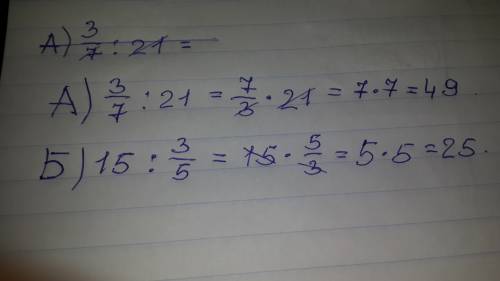 А) 3/7 : 21 =
А) 3/7 : 21 = 7/3 · 21 = 7 · 7 = 49.
Б) 15 : 3/5 = 15 · 5/3 = 5 · 5 = 25.